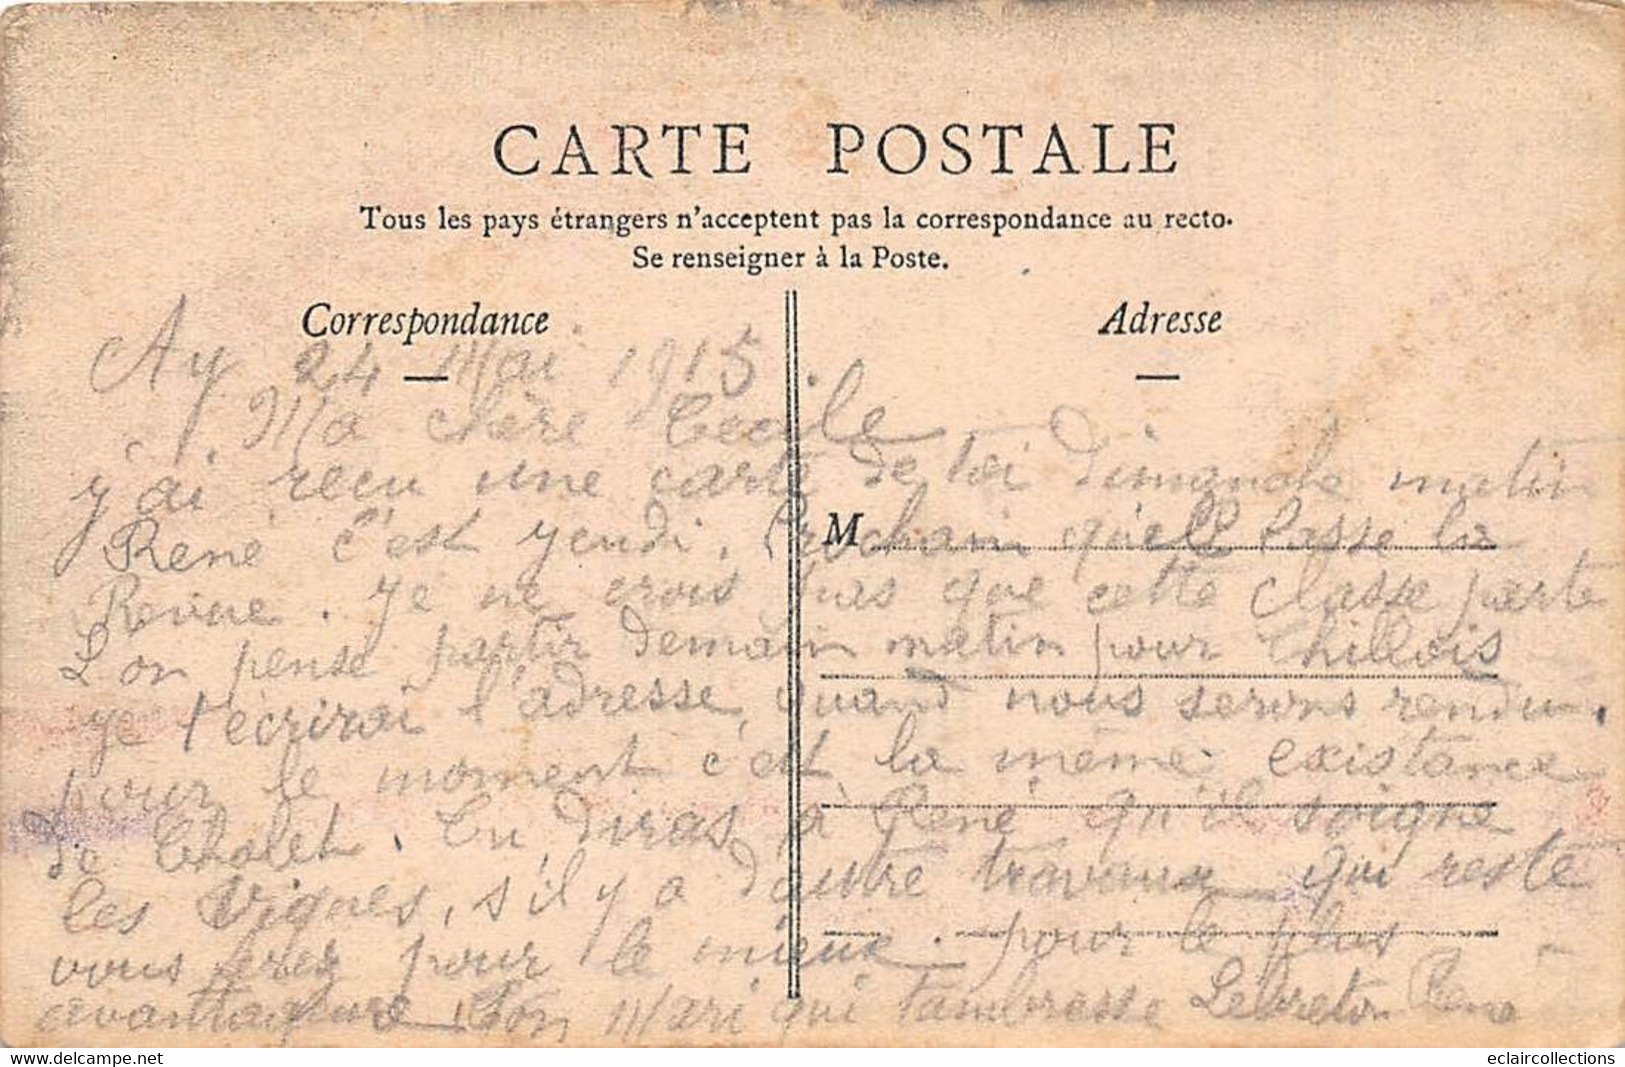 CARTE POSTALE
Tous les pays étrangers n'acceptent pas la correspondance au recto.
Se renseigner à la Poste.
Correspondance
Adresse
M
Ay 24 Mai 1915.
Ma chère Cecile
y'ai recu une carte de toi dimanche matin
René c'est yeudi. Prochain qu'ell Passe la
Revue. Je ne crois pas que cette classe parte
L'on pense partir demain matin pour Thillois
ye t'écrirai l'adresse, quand nous serons rendu.
pour le moment c'est la même existance
de Cholet. Tu diras à René qu'il soigne
les vignes, s'il y a d'autre travaux qui reste
vous ferez pour le mieux. pour le plus
avantageux Ton Mari qui t'ambrasse Lebreton René
eclaircollections